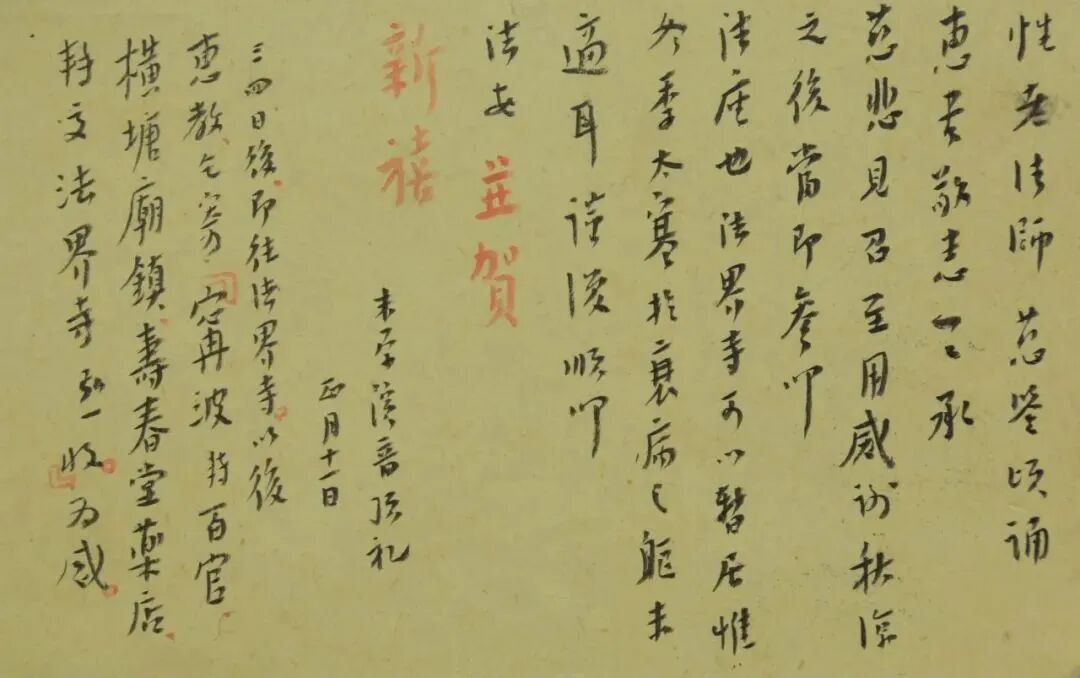 性老法師 慈鑒頃誦
惠書敬悉一一承
慈悲見召至用感謝秋涼
之後當即參叩
法座也法界寺可以暫居惟
冬季太寒於衰病之軀未
適耳謹復順叩
法安 並賀
新禧
末學演音頂礼
正月十一日
三四日後即往法界寺以後
惠教乞寄 寧波 轉百官
橫塘廟鎮壽春堂藥店
轉交法界寺弘一收為感